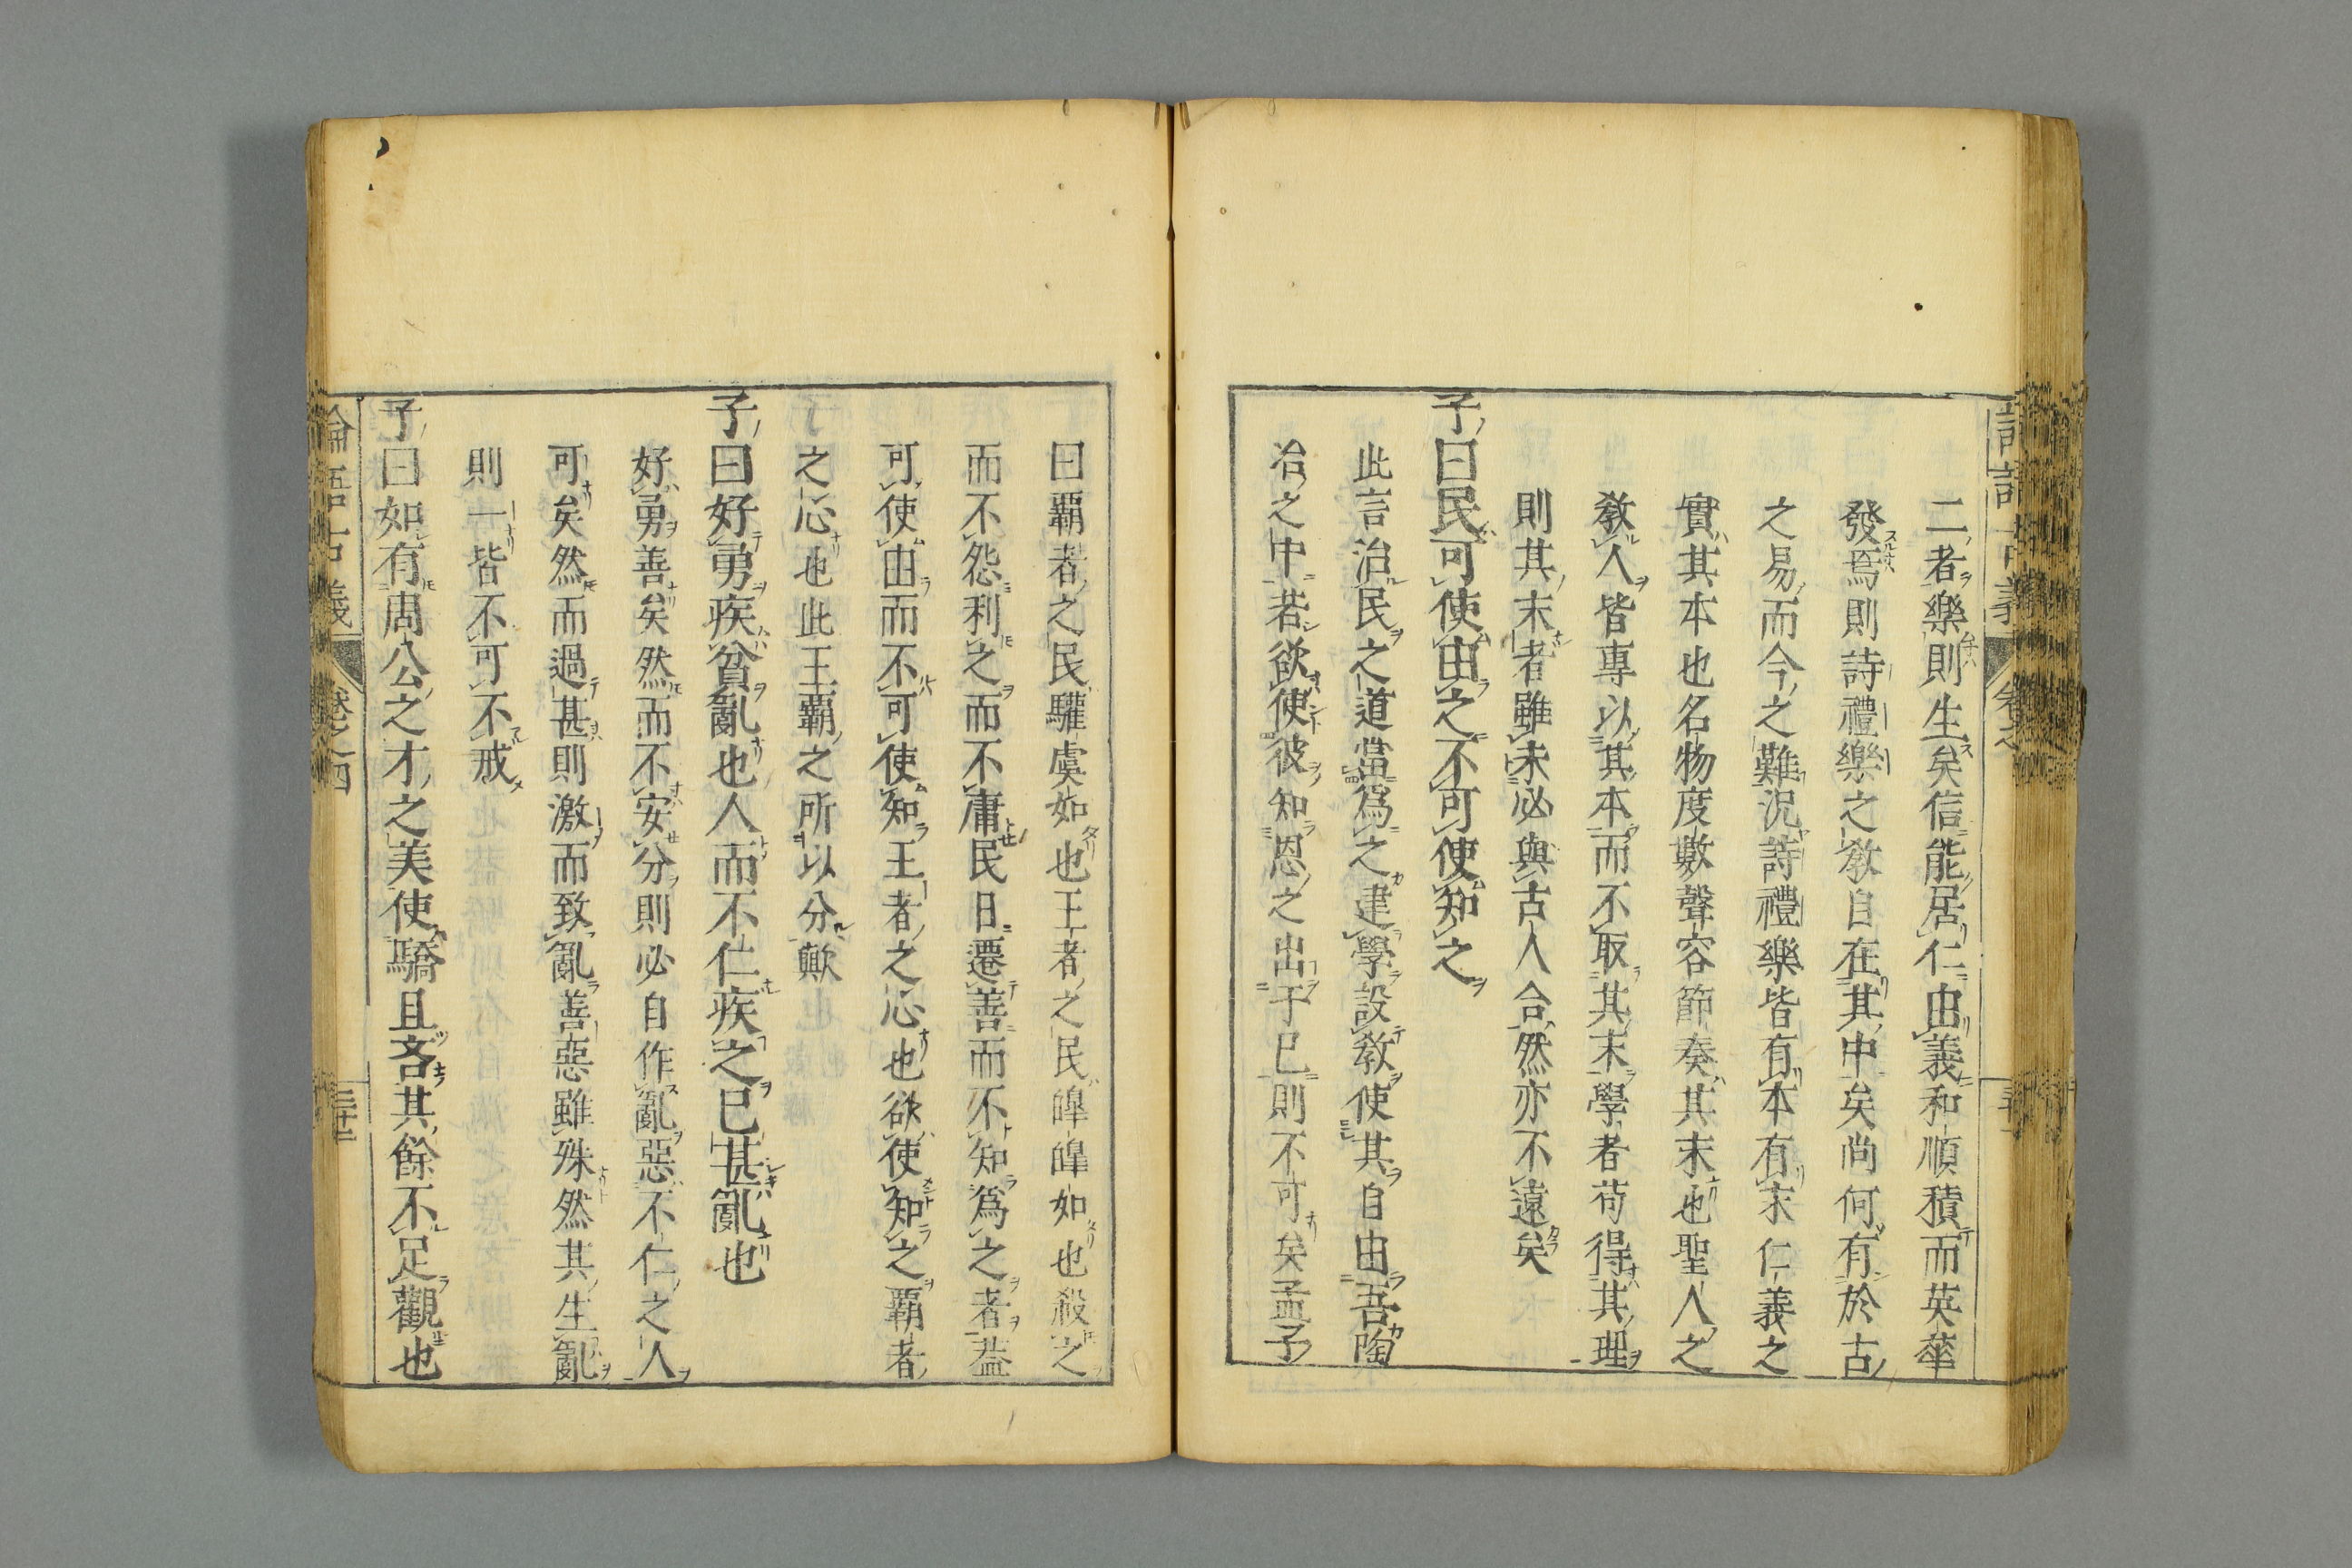 二者樂則生矣信能居仁由義和順積而英華
發焉則詩禮樂之敎自在其中矣尚何有於古
之易而今之難況詩禮樂皆有本有末仁義之
實其本也名物度數聲容節奏其末也聖人之
敎人皆專以其本而不取其末學者苟得其理
則其末者雖未必與古人合然亦不遠矣
子曰民可使由之不可使知之
此言治民之道當爲之建學設敎使其自由吾陶
冶之中若欲使彼知恩之出于己則不可矣孟子
曰覇者之民驩虞如也王者之民皥皥如也殺之
而不怨利之而不庸民日遷善而不知爲之者蓋
可使由而不可使知王者之心也欲使知之覇者
之心也此王覇之所以分歟
子曰好勇疾貧亂也人而不仁疾之已甚亂也
好勇善矣然而不安分則必自作亂惡不仁之人
可矣然而過甚則激而致亂善惡雖殊然其生亂
則一皆不可不戒
子曰如有周公之才之美使驕且吝其餘不足觀也
論語古義
卷之四
三十二